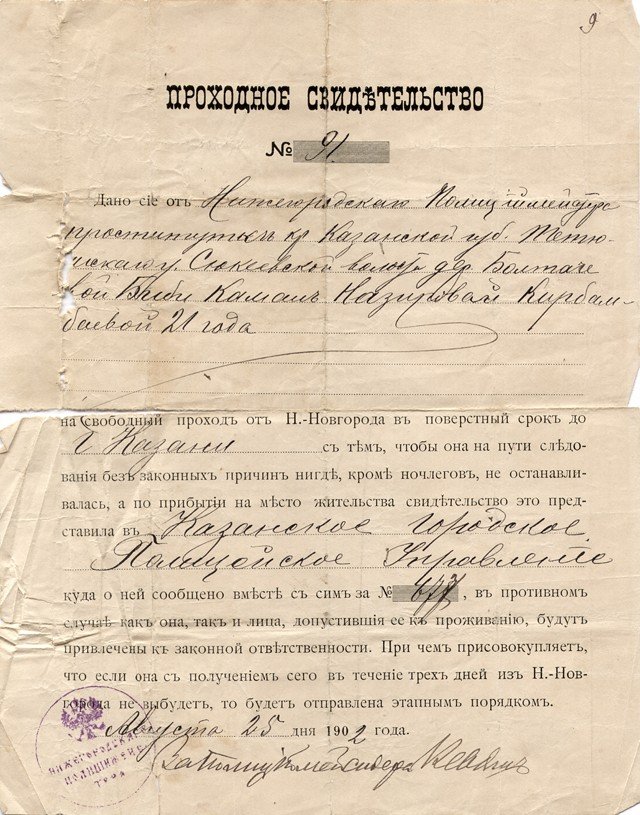 9
ПРОХОДНОЕ СВИДѢТЕЛЬСТВО
№ 91
Дано сіе отъ Нижегородскаго Полиціймейстера
проституткѣ кр. Казанской губ. Тетю-
шскаго у. Сюкеевской волости дер. Болтаче
вой Биби Камалъ Назировой Курбам-
баевой 21 года
на свободный проходъ отъ Н.-Новгорода въ поверстный срокъ до
г. Казани съ тѣмъ, чтобы она на пути слѣдо-
ванія безъ законныхъ причинъ нигдѣ, кромѣ ночлеговъ, не останавли-
валась, а по прибытіи на мѣсто жительства свидѣтельство это пред-
ставила въ Казанское Городское
Полицейское Управленіе
куда о ней сообщено вмѣстѣ съ симъ за № 677, въ противномъ
случаѣ какъ она, такъ и лица, допустившія ее къ проживанію, будутъ
привлечены къ законной отвѣтственности. При чемъ присовокупляетъ,
что если она съ полученіемъ сего въ теченіе трехъ дней изъ Н.-Нов-
города не выбудетъ, то будетъ отправлена этапнымъ порядкомъ.
Августа 25 дня 1902 года.
За Полиціймейстера
НИЖЕГОРОДСКАГО
ПОЛИЦІЙМЕЙС
ТЕРА